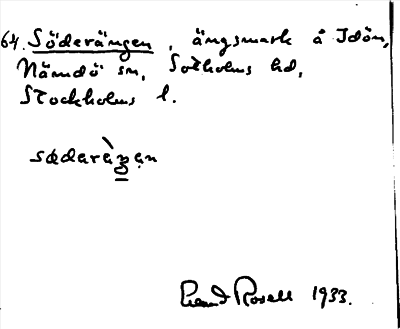 64. Söderängen, ängsmark å Idön,
Nämdö sn, Sotholms hd,
Stockholms l.
sødaràŋan
Rosell 1933.